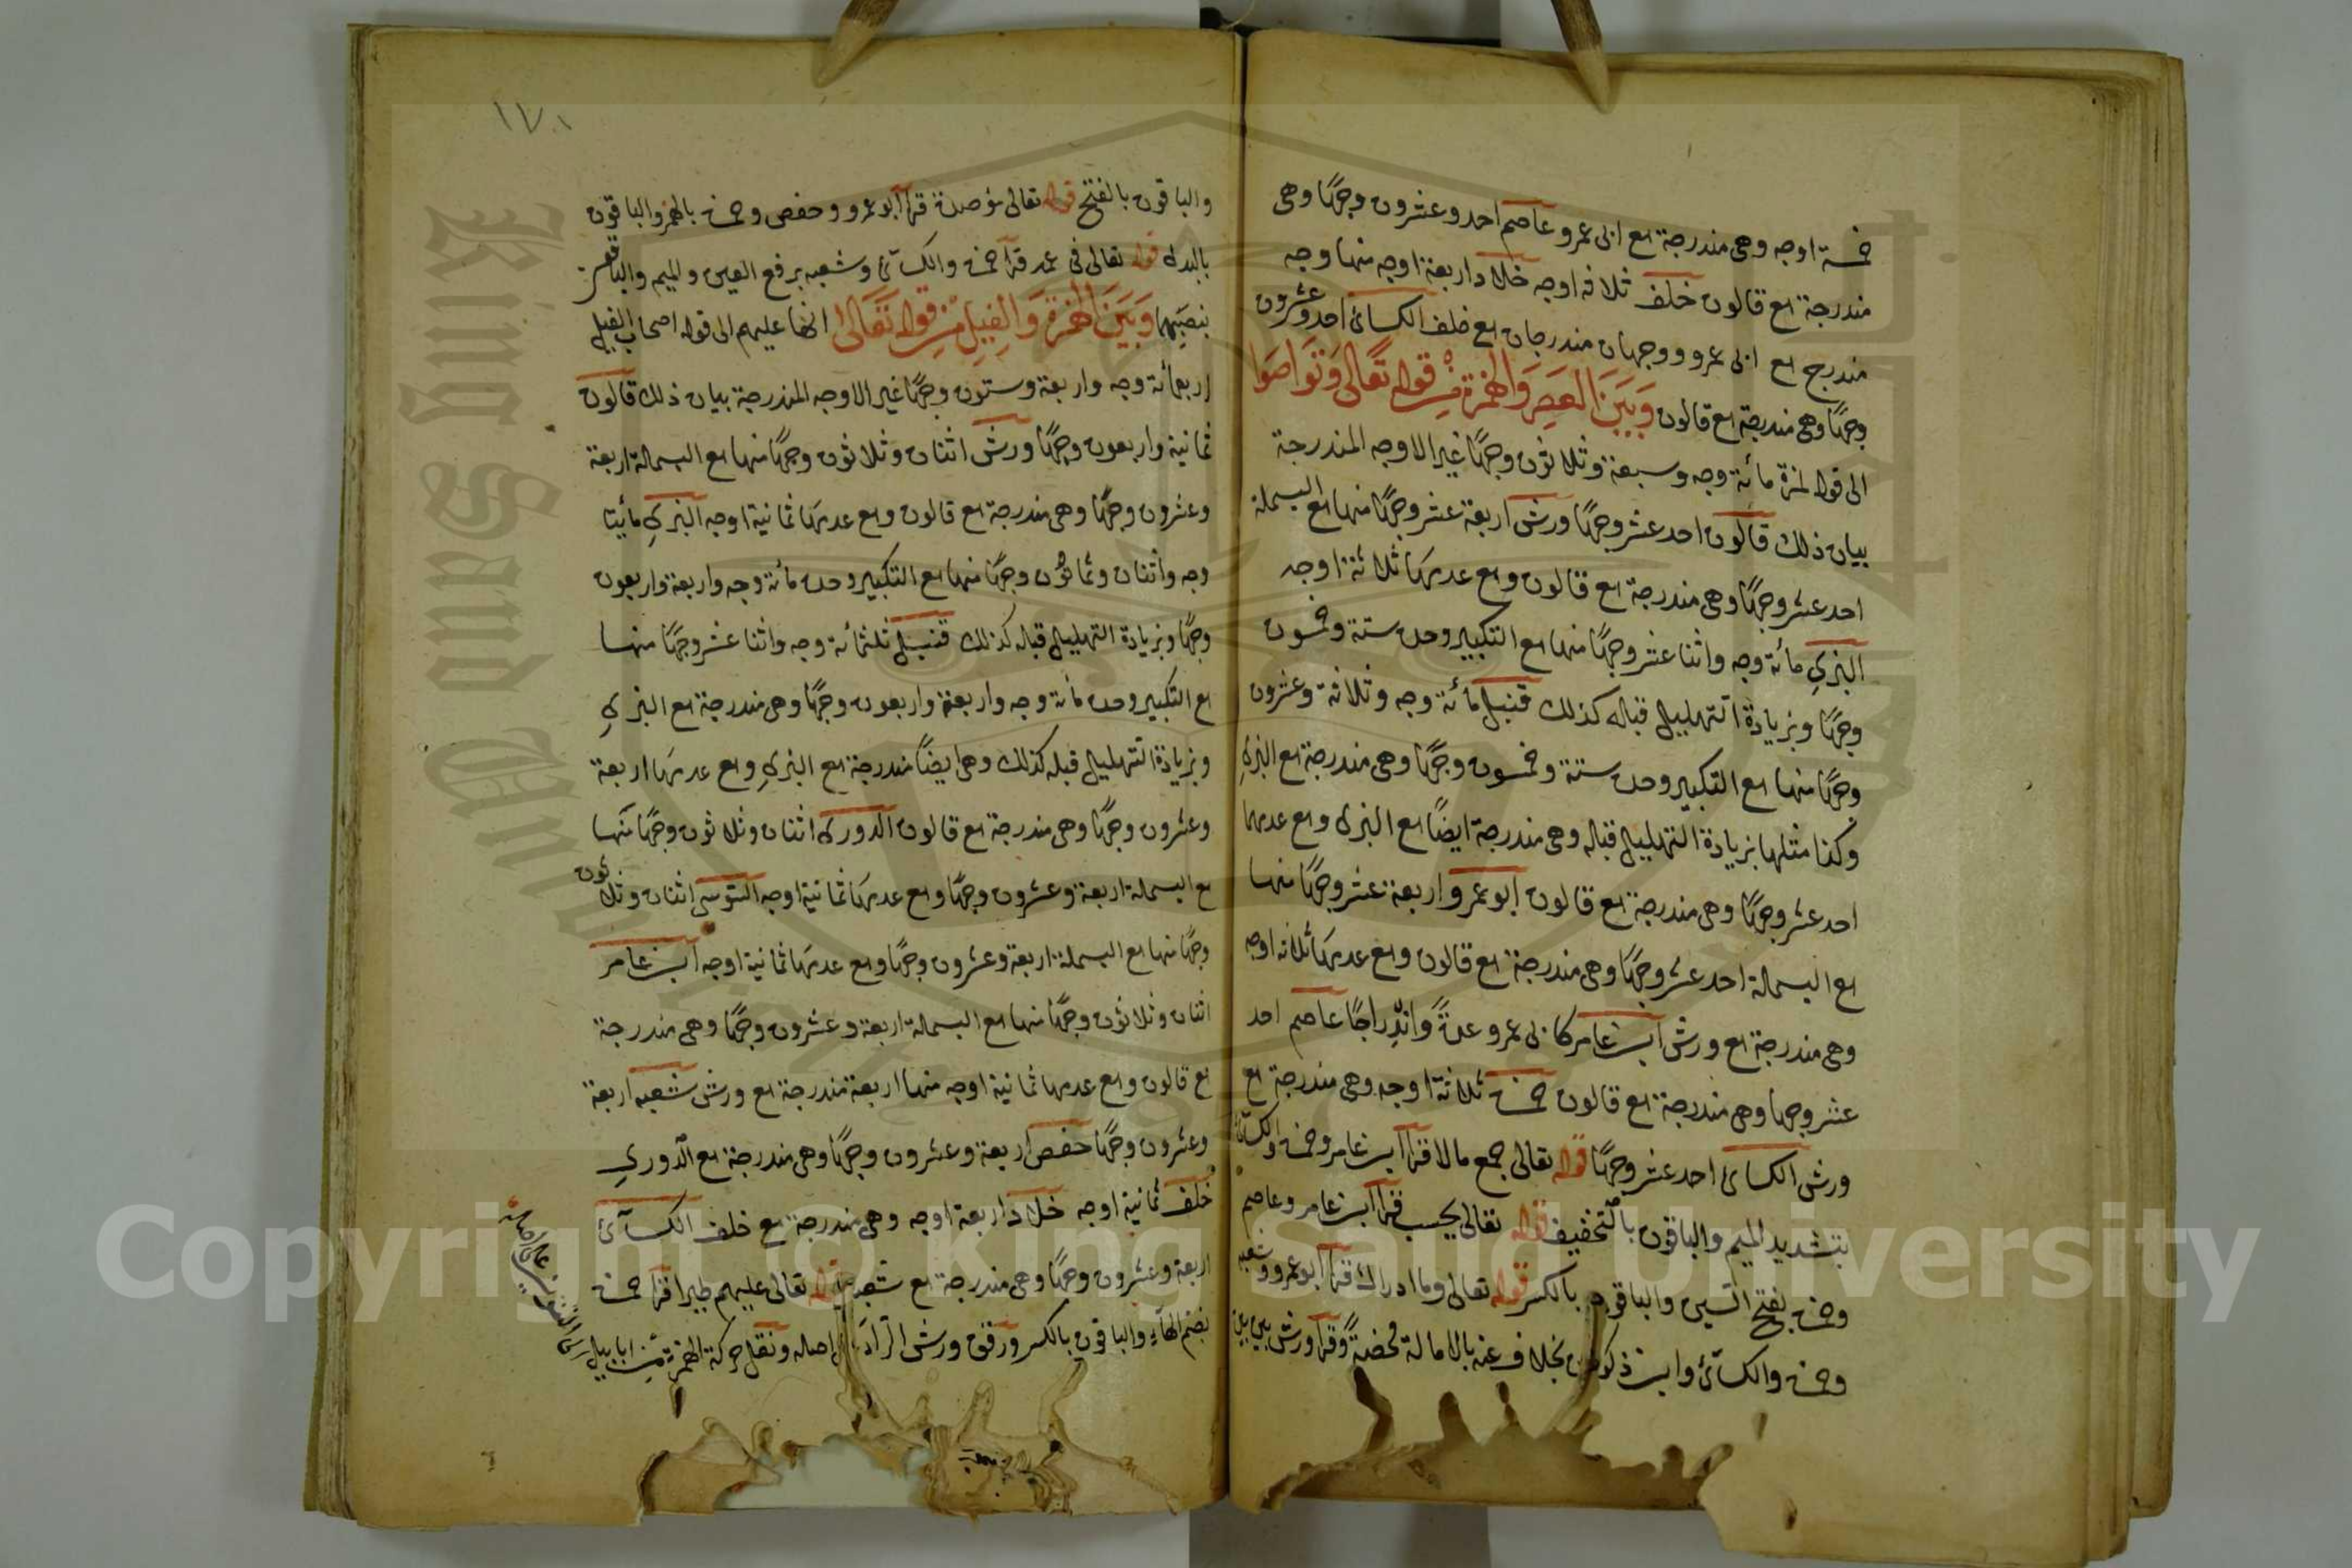 خمسة اوجه وهى مندرجة مع ابى عمرو عاصم احد وعشرون وجها وهى
مندرجة مع قالون خلف ثلاثة اوجه خلاد اربعة اوجه منها وجه
مندرج مع ابى عمرو ووجهان مندرجان مع خلف الكسائى احد وعشرون
وجها وهى مندرجة مع قالون وَبَيَنَ العَصِرِ وَالهمزة مِنْ قوله تَعَالى وَتَوَاصَوا
الى قوله لمزة مائة وجه وسبعة وثلاثون وجها غير الاوجه المندرجة
بيان ذلك قالون احد عشر وجها ورش اربعة عشر وجها منها مع البسملة
احد عشر وجها وهى مندرجة مع قالون ومع عدمها ثلاثة اوجه
البزي مائة وجه واثنا عشر وجها منها مع التكبير وحده ستة وخمسون
وجها وبزيادة التهليل قبله كذلك قنبل مائة وجه وثلاثة وعشرون
وجها منها مع التكبير وحده ستة وخمسون وجها وهى مندرجة مع البزي
وكذا مثلها بزيادة التهليل قبله وهى مندرجة ايضا مع البزى ومع عدمهما
احد عشر وجها وهى مندرجة مع قالون ابو عمرو اربعة عشر وجها منها
مع البسملة احد عشر وجها وهى مندرجة مع قالون ومع عدمها ثلاثة اوجه
وهى مندرجة مع ورش ابن عامر كابى عمرو عدة واندراجا عاصم احد
عشر وجها وهى مندرجة مع قالون حمزة ثلاثة اوجه وهى مندرجة مع
ورش الكسائى احد عشر وجها قوله تعالى جمع مالا قرأ ابن عامر وحمزة والكسائى
بتشديد الميم والباقون بالتخفيف قوله تعالى يحسب قرأ ابن عامر وعاصم
وحمزة بفتح السين والباقون بالكسر قوله تعالى وما ادراك قرأ ابو عمرو وشعبه
وحمزة والكسائى وابن ذكوان بخلاف عنه بالامالة محضة وقرأ ورش بين بين
١٧٠
والباقون بالفتح قوله تعالى مؤصدة قرأ ابو عمرو وحفص وحمزة بالهمز والباقون
بالبدل قوله تعالى فى عمد قرأ حمزة والكسائى وشعبه برفع العين والميم والباقون
بنصبهما وَبَيَنَ الهمزة وَالفِيلِ مِنْ قوله تَعَالى انها عليهم الى قوله اصحاب الفيل
اربعمائة وجه واربعة وستون وجها غير الاوجه المندرجة بيان ذلك قالون
ثمانية واربعون وجها ورش اثنان وثلاثون وجها منها مع البسملة اربعة
وعشرون وجها وهى مندرجة مع قالون ومع عدمها ثمانية اوجه البزي مائيتا
وجه واثنان وثمانون وجها منها مع التكبير وحده مائة وجه واربعة واربعون
وجها وبزيادة التهليل قبله كذلك قنبل ثلثمائة وجه واثنا عشر وجها منها
مع التكبير وحده مائة وجه واربعة واربعون وجها وهى مندرجة مع البزي
وبزيادة التهليل قبله كذلك وهى ايضا مندرجة مع البزي ومع عدمهما اربعة
وعشرون وجها وهى مندرجة مع قالون الدورى اثنان وثلاثون وجها منها
مع البسملة اربعة وعشرون وجها ومع عدمها ثمانية اوجه السوسى اثنان وثلاثون
وجها منها مع البسملة اربعة وعشرون وجها ومع عدمها ثمانية اوجه ابن عامر
اثنان وثلاثون وجها منها مع البسملة اربعة وعشرون وجها وهى مندرجة
مع قالون ومع عدمها ثمانية اوجه منها اربعة مندرجة مع ورش شعبه اربعة
وعشرون وجها حفص اربعة وعشرون وجها وهى مندرجة مع الدوري
خلف ثمانية اوجه خلاد اربعة اوجه وهى مندرجة مع خلف الكسائى
اربعة وعشرون وجها وهى مندرجة مع شعبه قوله تعالى عليهم طيرا قرأ حمزة
بضم الهاء والباقون بالكسر ورقق ورش الراء على اصله ونقل حركة الهمزة من ابابيل
Copyright © King Saud University
King Saud University